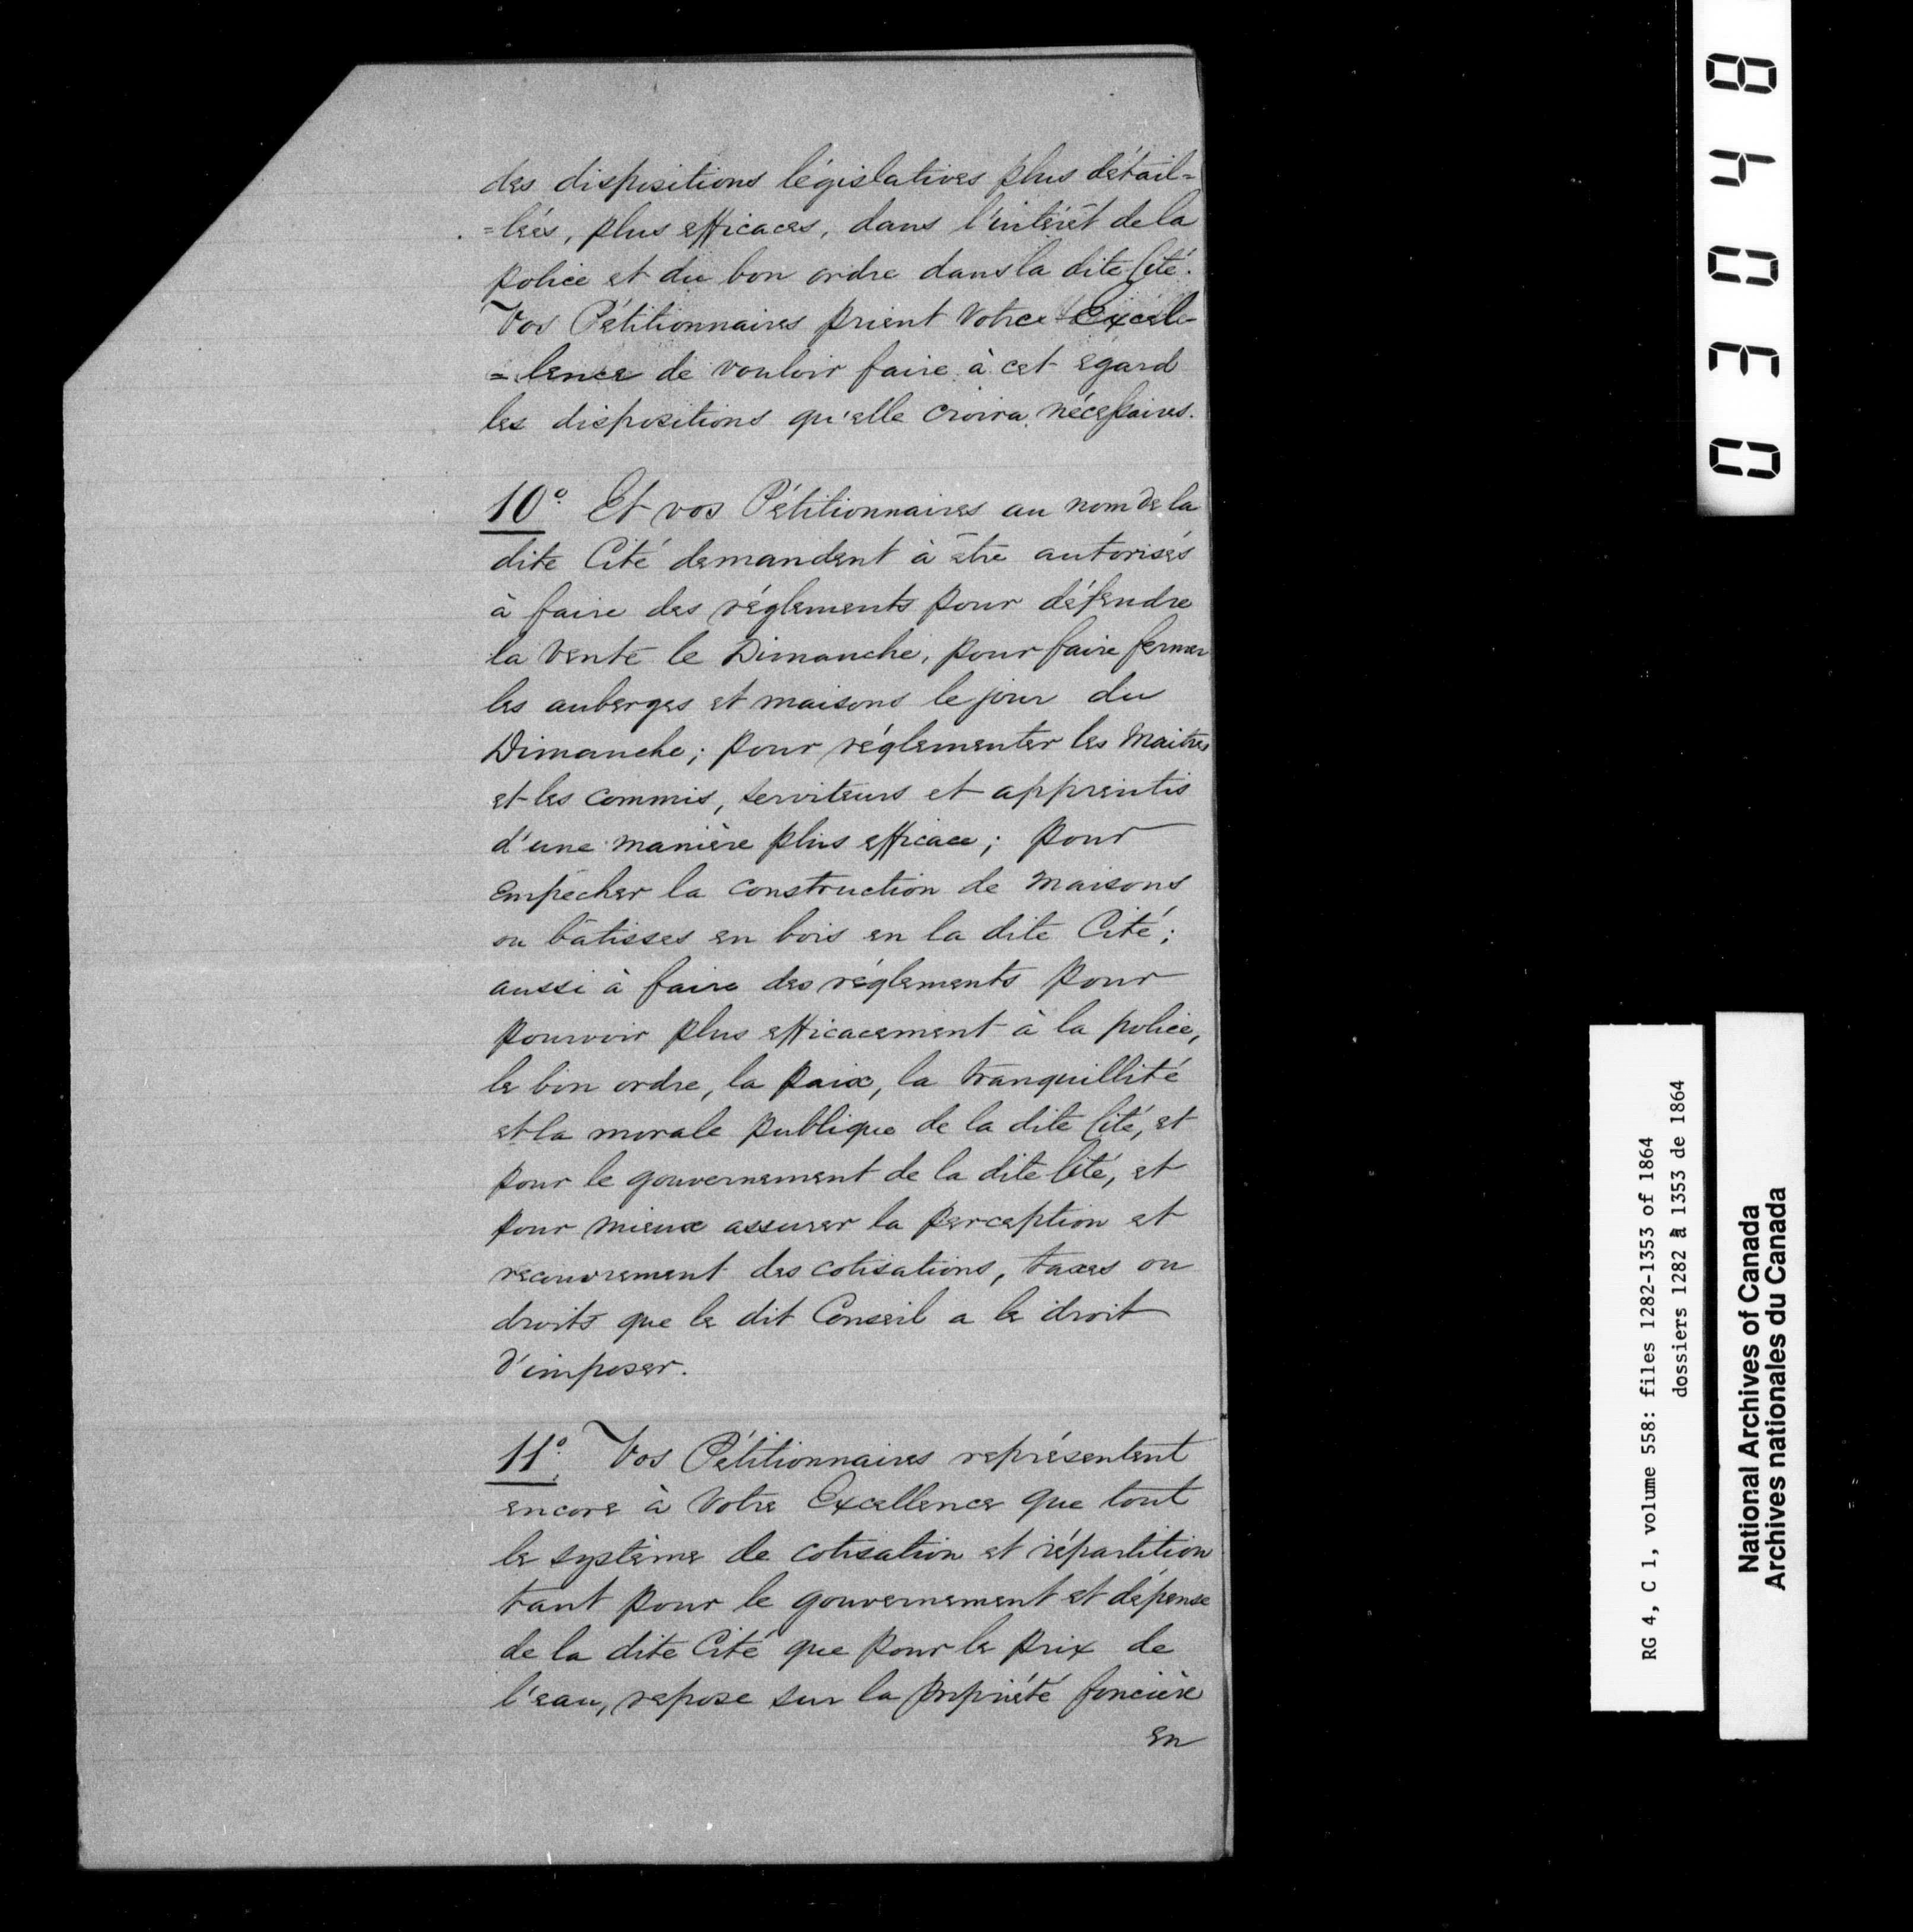 des dispositions législatives plus détail=
=lées, plus efficaces, dans l'intérêt de la
police et du bon ordre dans la dite Cité.
Vos Pétitionnaires prient Votre Excel=
=lence de vouloir faire à cet égard
les dispositions qu'elle croira nécessaires.
10° Et vos Pétitionnaires au nom de la
dite Cité demandent à être autorisés
à faire des réglements pour défendre
la vente le Dimanche, pour faire fermer
les auberges et maisons le jour du
Dimanche; pour réglementer les Maitres
et les commis, serviteurs et apprentis
d'une manière plus efficace; pour
empêcher la construction de maisons
ou bâtisses en bois en la dite Cité;
aussi à faire des réglements pour
pourvoir plus efficacement à la police,
le bon ordre, la paix, la tranquillité
et la morale publique de la dite Cité, et
pour le gouvernement de la dite Cité, et
pour mieux assurer la perception et
recouvrement des cotisations, taxes ou
droits que le dit Conseil a le droit
d'imposer.
11° Vos Pétitionnaires représentent
encore à Votre Excellence que tout
le système de cotisation et répartition
tant pour le gouvernement et dépense
de la dite Cité que pour le prix de
l'eau, repose sur la propriété foncière
en
03048
RG 4, C 1, volume 558: files 1282-1353 of 1864
dossiers 1282 à 1353 de 1864
National Archives of Canada
Archives nationales du Canada